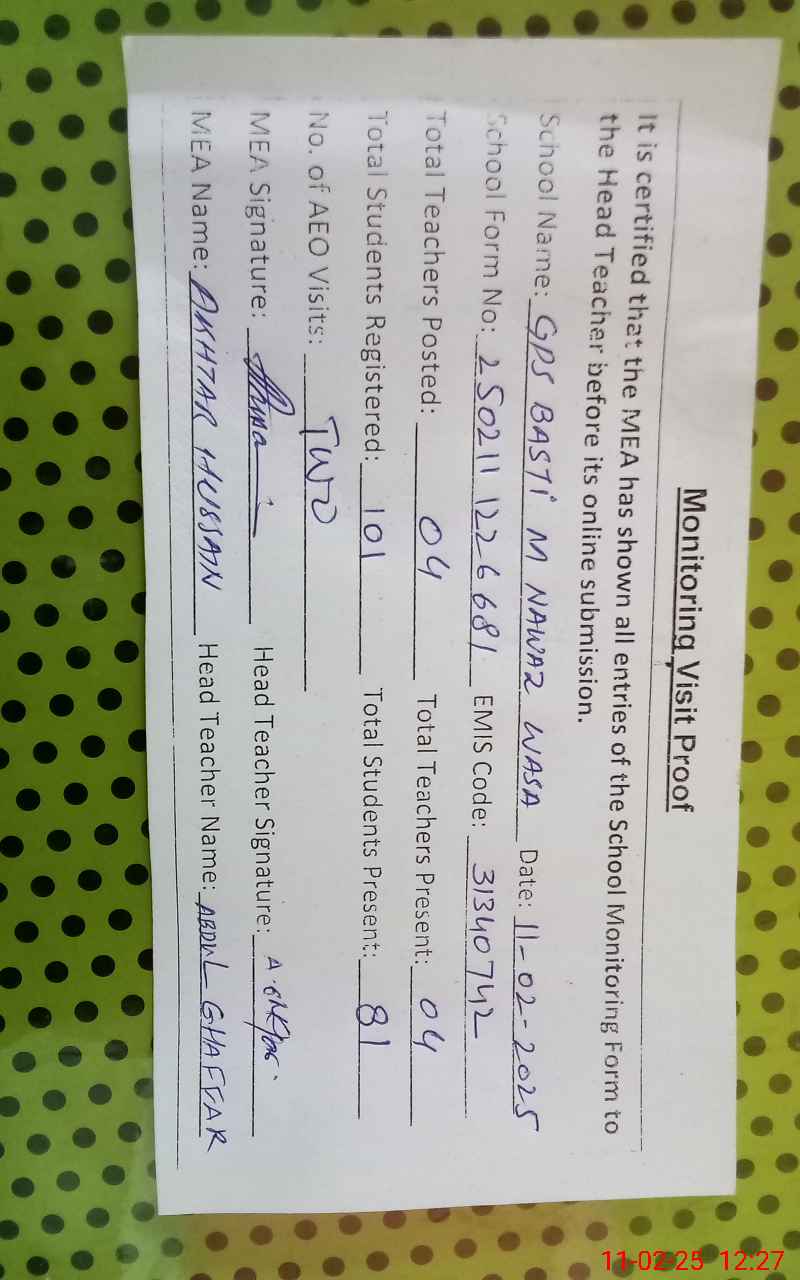 Monitoring Visit Proof
It is certified that the MEA has shown all entries of the School Monitoring Form to
the Head Teacher before its online submission.
School Name: GPS BASTI M NAWAZ WASA Date: 11-02-2025
School Form No: 250211 1226681 EMIS Code: 31340742
Total Teachers Posted: 04 Total Teachers Present: 04
Total Students Registered: 101 Total Students Present: 81
No. of AEO Visits: TWO
MEA Signature: Head Teacher Signature:
MEA Name: AKHTAR HUSSAIN Head Teacher Name: ABDUL GHAFFAR
11-02-25 12:27